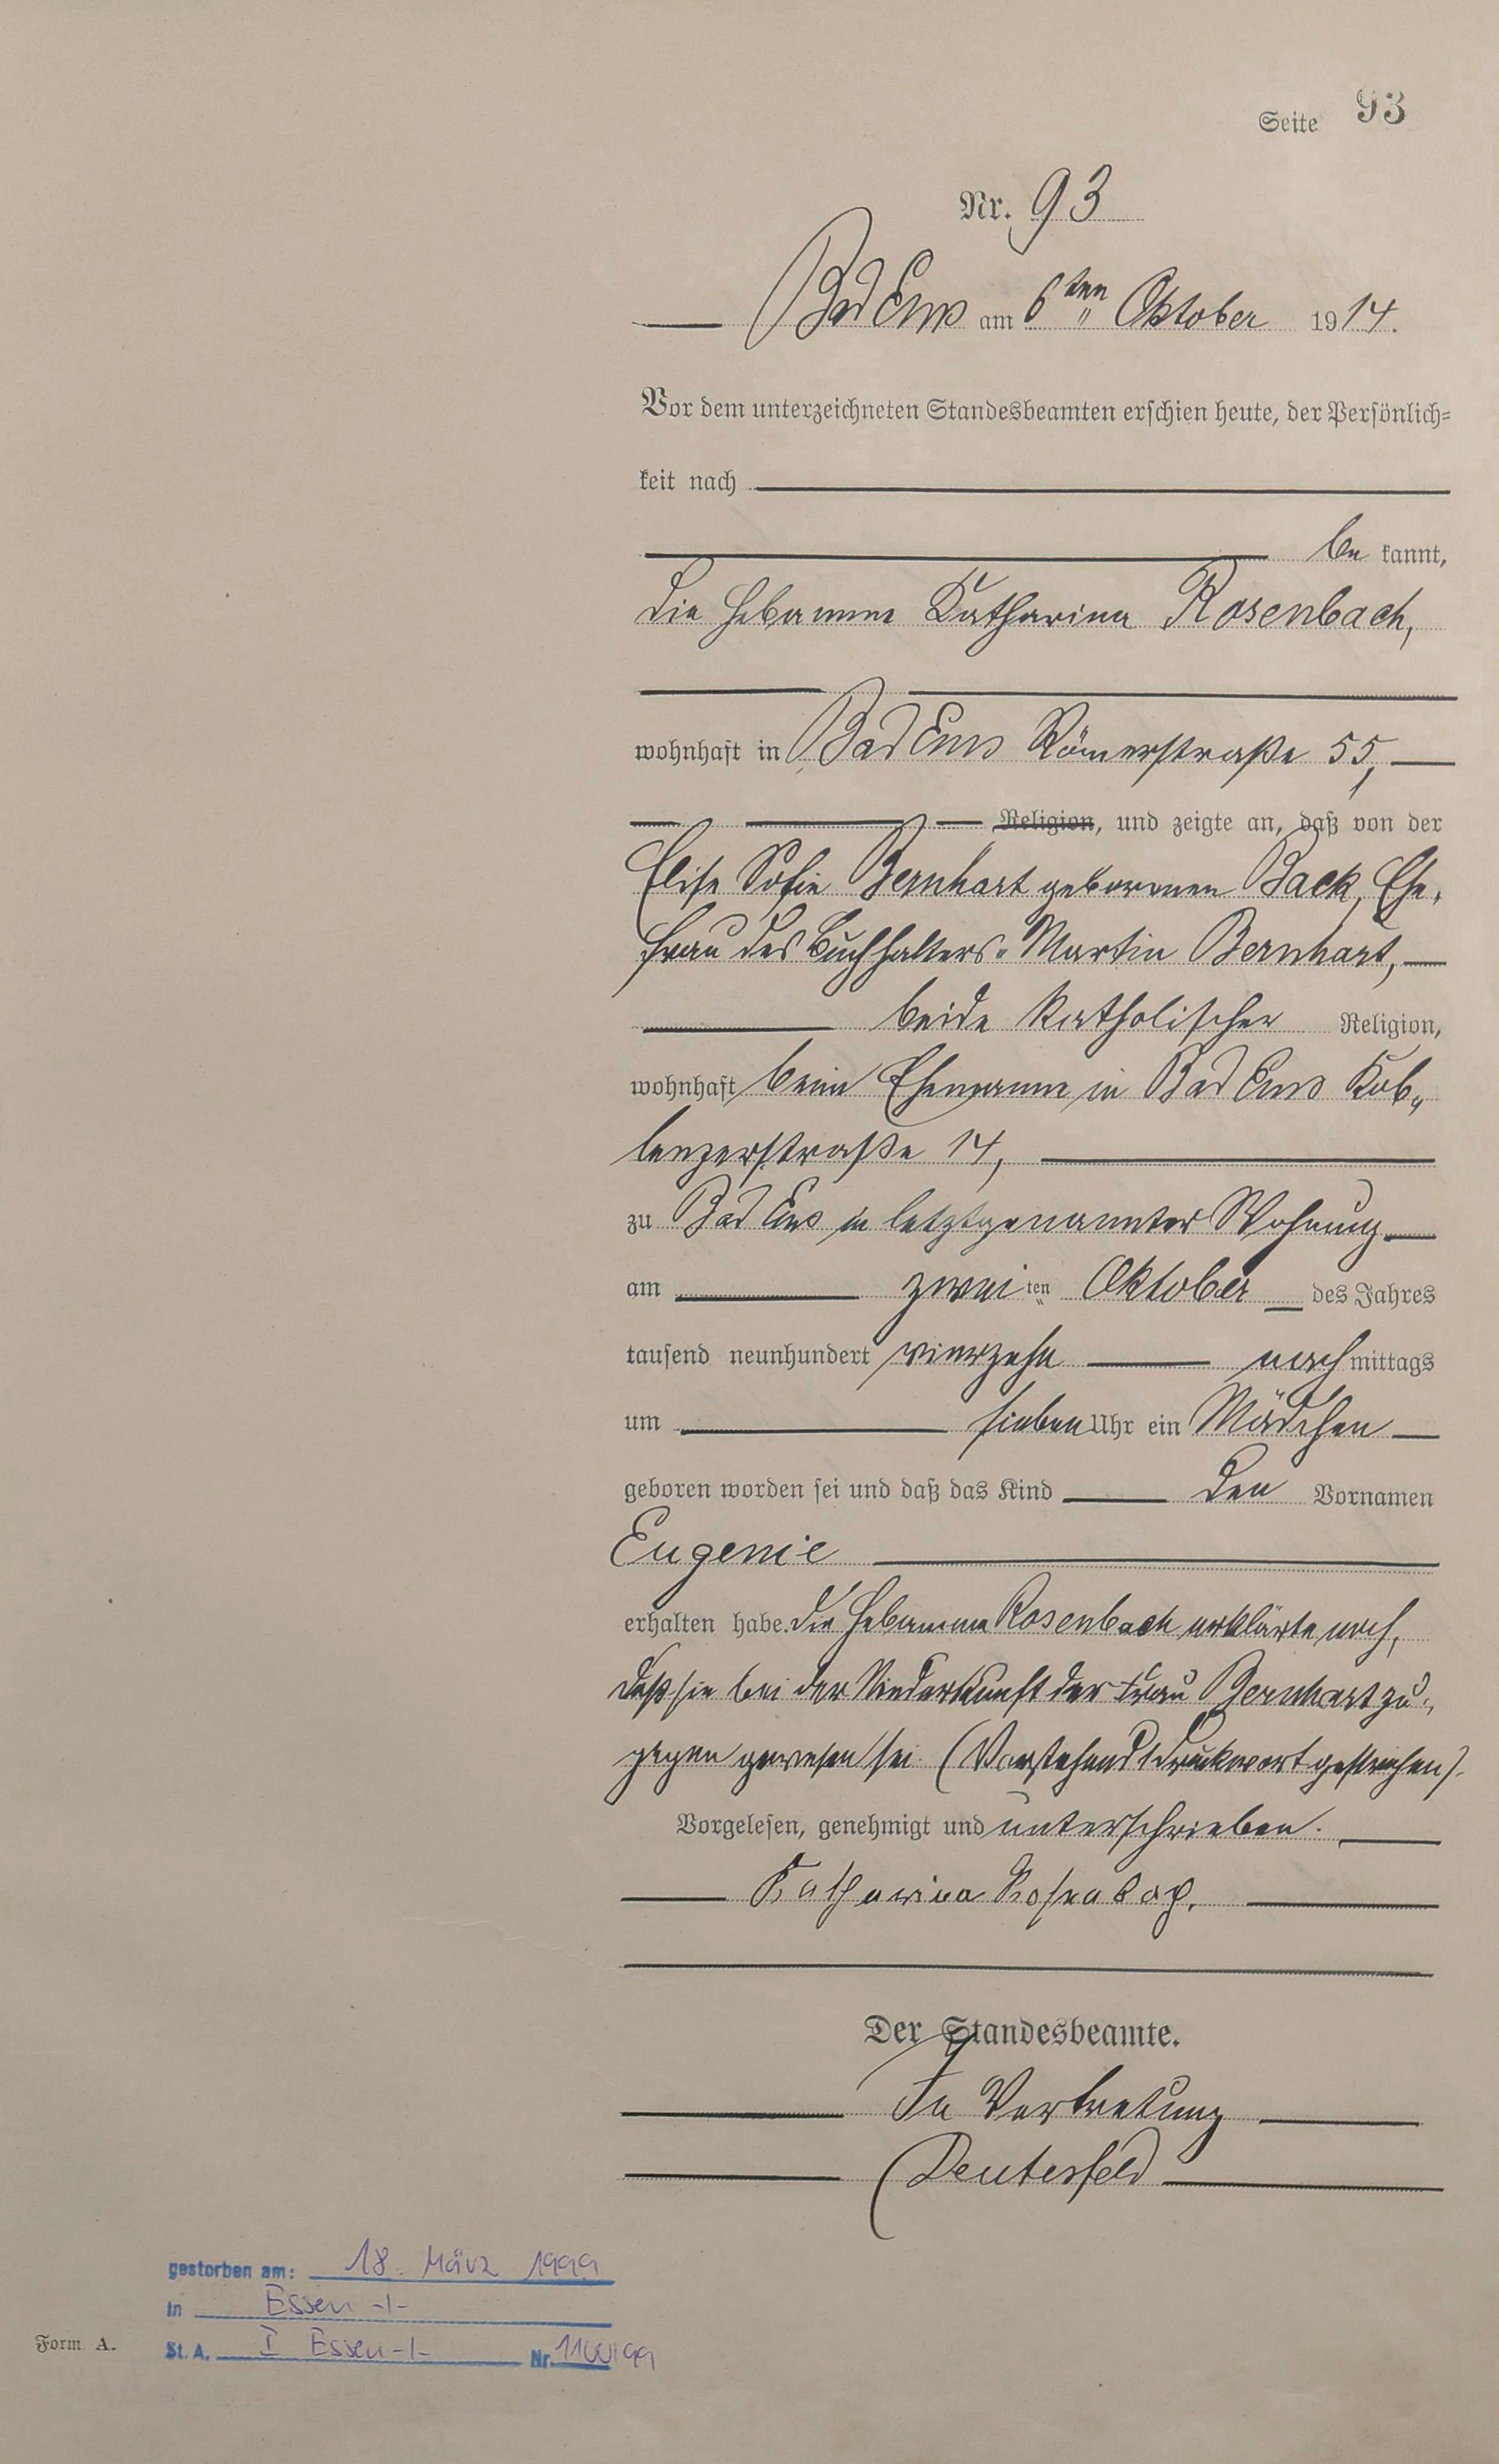 Seite 93
Nr. 93
Bad Ems am 6ten Oktober 1914.
Vor dem unterzeichneten Standesbeamten erschien heute, der Persönlich=
keit nach
be kannt,
die Hebamme Katharina Rosenbach,
wohnhaft in Bad Ems Römerstraße 55,
Religion, und zeigte an, daß von der
Elise Sofie Bernhart geborenen Back, Ehe-
frau des Buchhalters Martin Bernhart,
beide katholischer Religion,
wohnhaft beim Ehemanne in Bad Ems Kob-
lenzerstraße 14,
zu Bad Ems in letztgenannter Wohnung
am zweiten Oktober des Jahres
tausend neunhundert vierzehn nachmittags
um sieben Uhr ein Mädchen
geboren worden sei und daß das Kind den Vornamen
Eugenie
erhalten habe. Die Hebamme Rosenbach erklärte noch,
daß sie bei der Niederkunft der Frau Bernhart zu-
gegen gewesen sei. (Vorstehend 1 Druckwort gestrichen).
Vorgelesen, genehmigt und unterschrieben.
Katharina Rosenbach.
Der Standesbeamte.
In Vertretung
Deutesfeld
gestorben am: 18. März 1999
in Essen -I-
Form A.
St. A. I Essen -I- Nr.